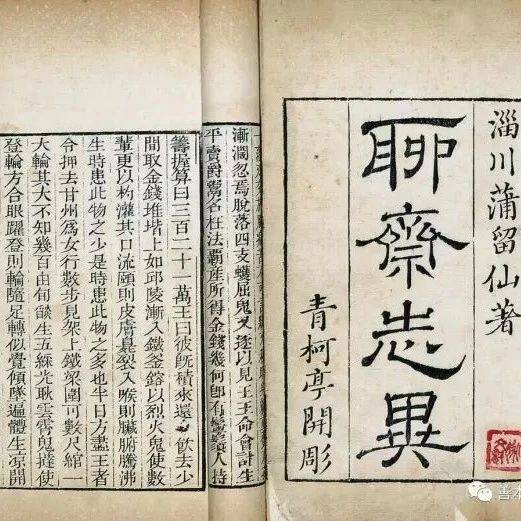 淄川蒲留仙著
聊齋志異
青柯亭開彫
漸濶忽焉脫落四支蠖屈鬼又逐以見王王命會計生
平賣爵鬻名枉法霸產所得金錢幾何卽有鬡鬚人持
籌握算曰三百二十一萬王曰彼旣積來還令飲去少
間取金錢堆堦上如邱陵漸入鐵釜鎔以烈火鬼使數
輩更以杓灌其口流頤則皮膚臭裂入喉則臟腑騰沸
生時患此物之少是時患此物之多也半日方盡王者
令押去甘州爲女行數步見架上鐵梁圍可數尺綰一
大輪其大不知幾百由旬燄生五綵光耿雲霄鬼撻使
登輪方合眼躍登則輪隨足轉似覺傾墜遍體生涼開
善本